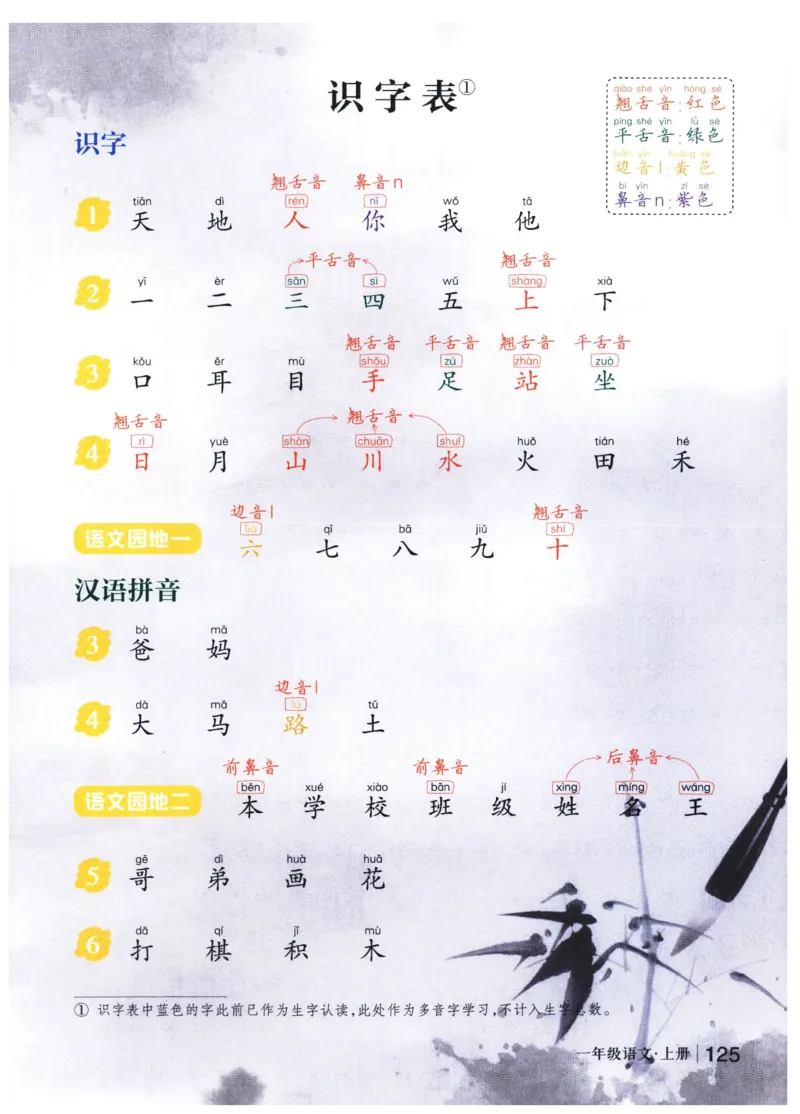 识字表①
qiào shé yīn hóng sè
翘舌音:红色
píng shé yīn lǜ sè
平舌音:绿色
biān yīn huáng sè
边音l:黄色
bí yīn zǐ sè
鼻音n:紫色
识字
翘舌音 鼻音n
tiān dì rén nǐ wǒ tā
1 天 地 人 你 我 他
平舌音 翘舌音
yī èr sān sì wǔ shàng xià
2 一 二 三 四 五 上 下
翘舌音 平舌音 翘舌音 平舌音
kǒu ěr mù shǒu zú zhàn zuò
3 口 耳 目 手 足 站 坐
翘舌音 翘舌音
rì yuè shān chuān shuǐ huǒ tián hé
4 日 月 山 川 水 火 田 禾
边音l 翘舌音
liù qī bā jiǔ shí
语文园地一 六 七 八 九 十
汉语拼音
bà mā
3 爸 妈
边音l
dà mǎ lù tǔ
4 大 马 路 土
前鼻音 前鼻音 后鼻音
běn xué xiào bān jí xìng míng wáng
语文园地二 本 学 校 班 级 姓 名 王
gē dì huà huā
5 哥 弟 画 花
dǎ qí jī mù
6 打 棋 积 木
① 识字表中蓝色的字此前已作为生字认读,此处作为多音字学习,不计入生字总数。
一年级语文·上册 | 125